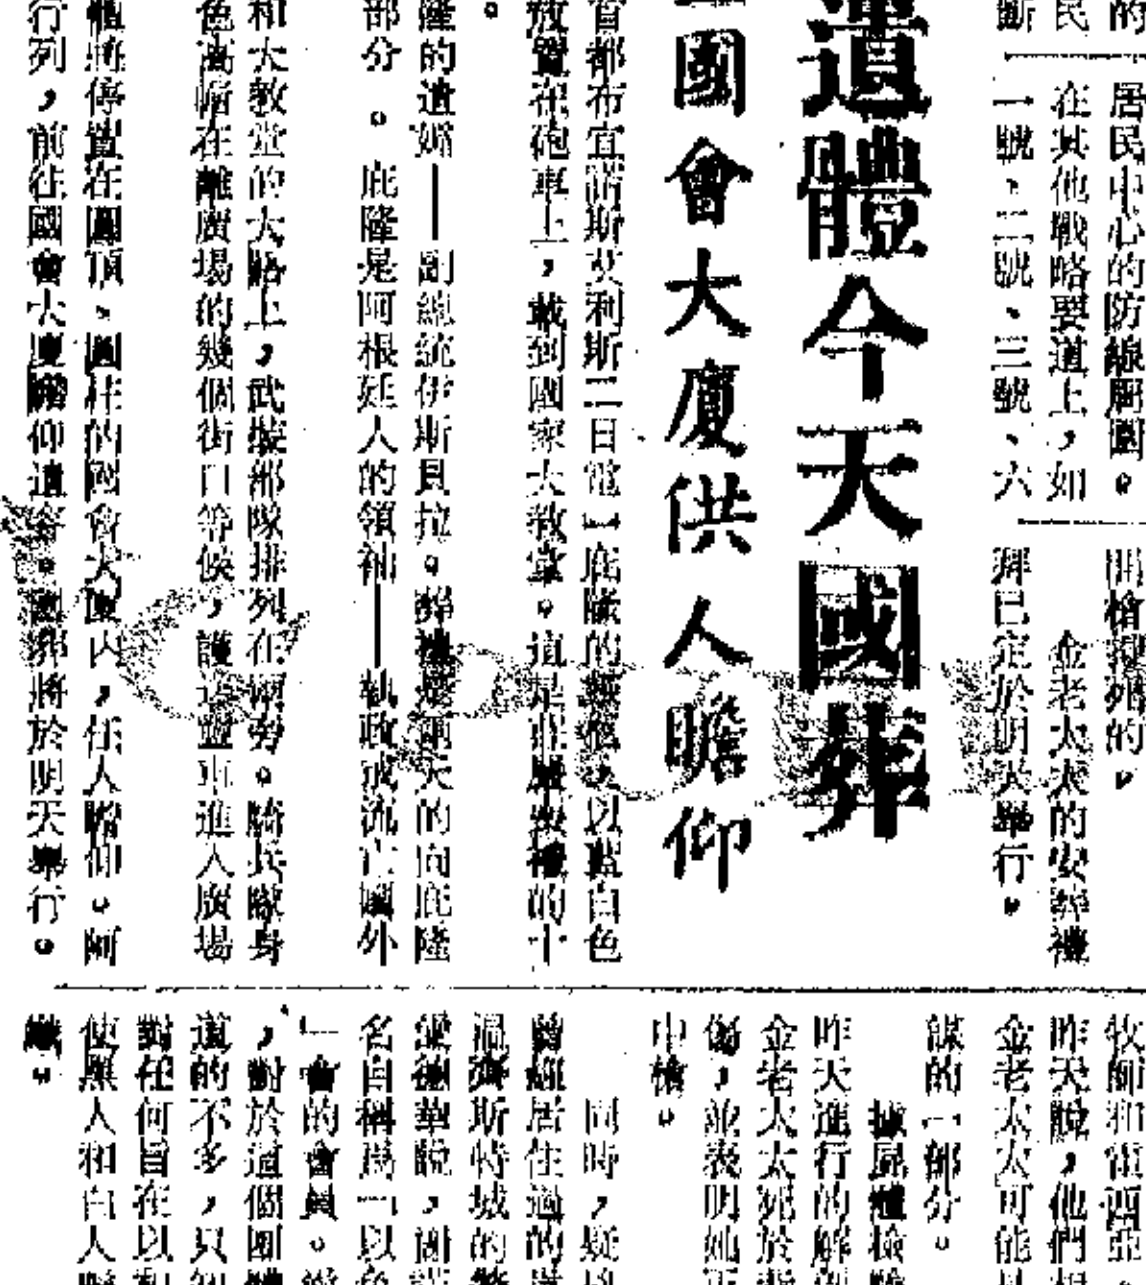 的
民
斷
居民中心的防線周圍。
在其他戰略要道上,如
一號、二號、三號、六
開槍擊死的。
金老太太的安葬禮
拜已定於明天舉行。
遺體今天國葬
國會大廈供人瞻仰
首都布宜諾斯艾利斯二日電】庇隆的以藍白色
放置在砲車上,載到國家大教堂。這是莊嚴喪禮的十
隆的遺孀——副總統伊斯貝拉。葬禮是兩天的向庇隆
部分。庇隆是阿根廷人的領袖——執政或流亡國外
和大教堂的大路上,武裝部隊排列在兩旁。騎兵隊身
色高帽在離廣場的幾個街口等候,護送靈車進入廣場
柩將停置在圓頂、圓柱的國會大廈內,任人瞻仰。阿
行列,前往國會大廈瞻仰遺容。國葬將於明天舉行。
牧師和雷西亞
昨天說,他們相
金老太太可能是
謀的一部分。
據屍體檢驗
昨天進行的解剖
金老太太死於
傷,並表明她
中槍。
同時,疑
曾經居住過的
溫濟斯特城的
愛德華說,謝
名自稱為「以色
」會的會員。
,對於這個團體
道的不多,只
對任何旨在以
使黑人和白人